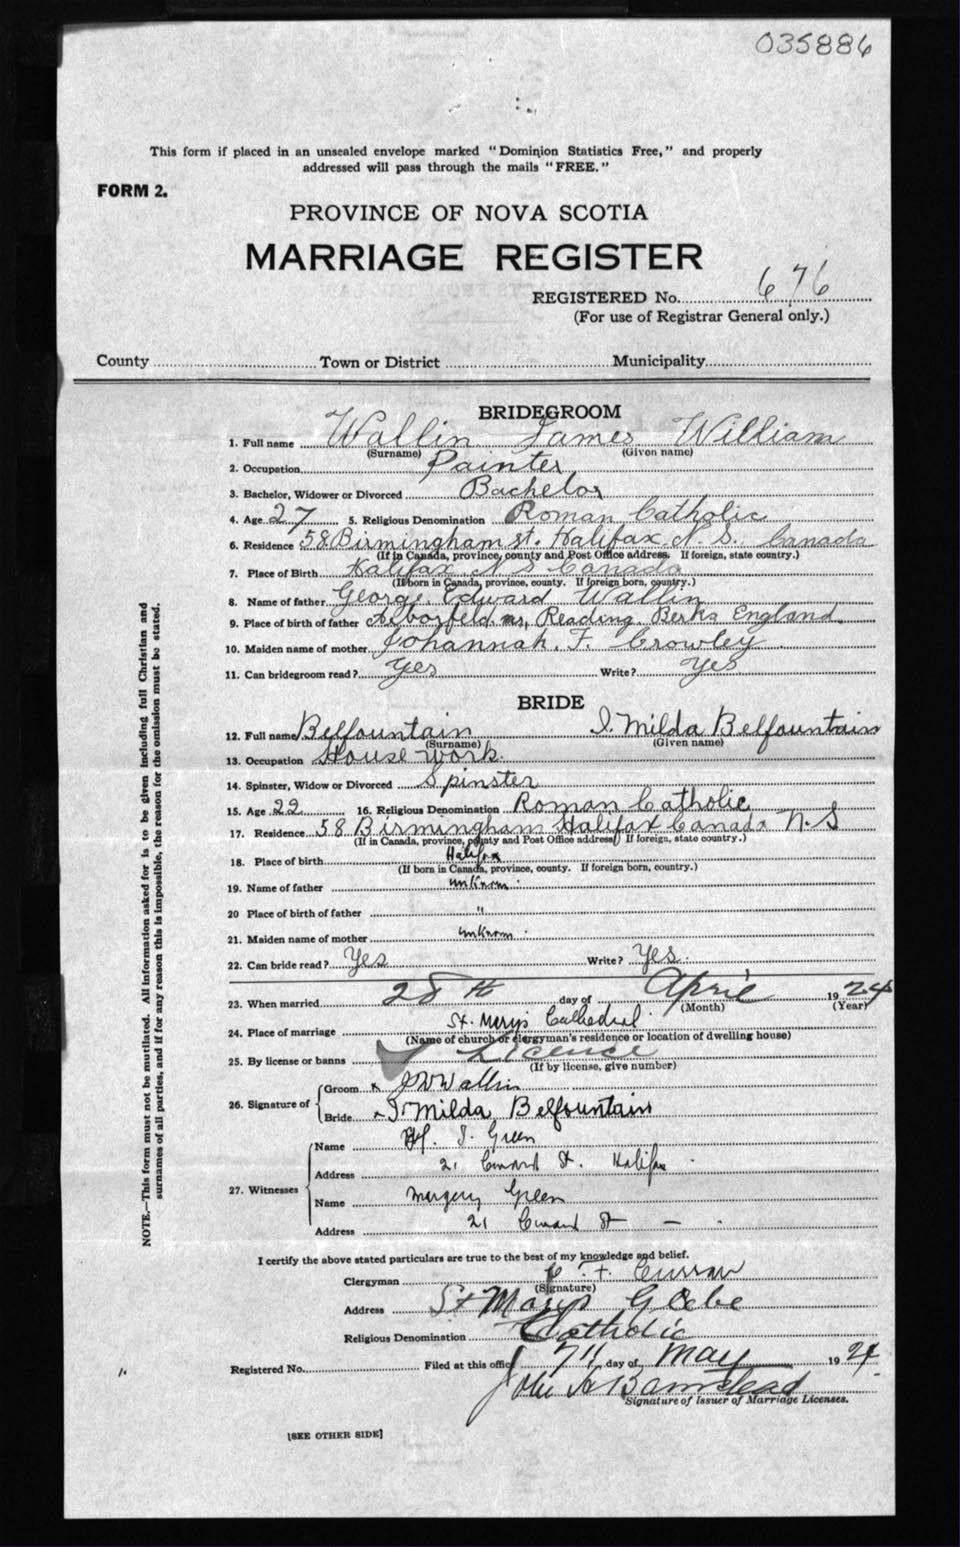 035886
This form if placed in an unsealed envelope marked "Dominion Statistics Free," and properly
addressed will pass through the mails "FREE."
FORM 2.
PROVINCE OF NOVA SCOTIA
MARRIAGE REGISTER
REGISTERED No. 676
(For use of Registrar General only.)
County Town or District Municipality
BRIDEGROOM
1. Full name Wallin James William
(Surname) (Given name)
2. Occupation Painter
3. Bachelor, Widower or Divorced Bachelor
4. Age 27 5. Religious Denomination Roman Catholic
6. Residence 58 Birmingham st. Halifax N. S. Canada
(If in Canada, province, county and Post Office address. If foreign, state country.)
7. Place of Birth Halifax N S Canada
(If born in Canada, province, county. If foreign born, country.)
8. Name of father George Edward Wallin
9. Place of birth of father Arborfeld nr, Reading Berks England
10. Maiden name of mother Johannah. F. Crowley
11. Can bridegroom read? Yes Write? Yes
BRIDE
12. Full name Belfountain I. Milda Belfountain
(Surname) (Given name)
13. Occupation House work.
14. Spinster, Widow or Divorced Spinster
15. Age 22 16. Religious Denomination Roman Catholic
17. Residence 58 Birmingham Halifax Canada N. S
(If in Canada, province, county and Post Office address) If foreign, state country.)
18. Place of birth Halifax
(If born in Canada, province, county. If foreign born, country.)
19. Name of father unknown.
20 Place of birth of father "
21. Maiden name of mother unknown.
22. Can bride read? Yes Write? Yes.
23. When married 28th day of April 1924
(Month) (Year)
24. Place of marriage St. Mary's Cathedral.
(Name of church or clergyman's residence or location of dwelling house)
25. By license or banns Licence
(If by license, give number)
26. Signature of Groom x J W Wallin
Bride x I. Milda Belfountain
27. Witnesses
Name J. Green
Address 21 St. Halifax
Name Margery Green
Address 21 St -
I certify the above stated particulars are true to the best of my knowledge and belief.
Clergyman C. F. Curran
(Signature)
Address St Marys Glebe
Religious Denomination Catholic
Registered No. Filed at this office 7th day of May 1924.
John A Barnstead
Signature of Issuer of Marriage Licenses.
[SEE OTHER SIDE]
NOTE.—This form must not be mutilated. All information asked for is to be given including full Christian and
surnames of all parties, and if for any reason this is impossible, the reason for the omission must be stated.